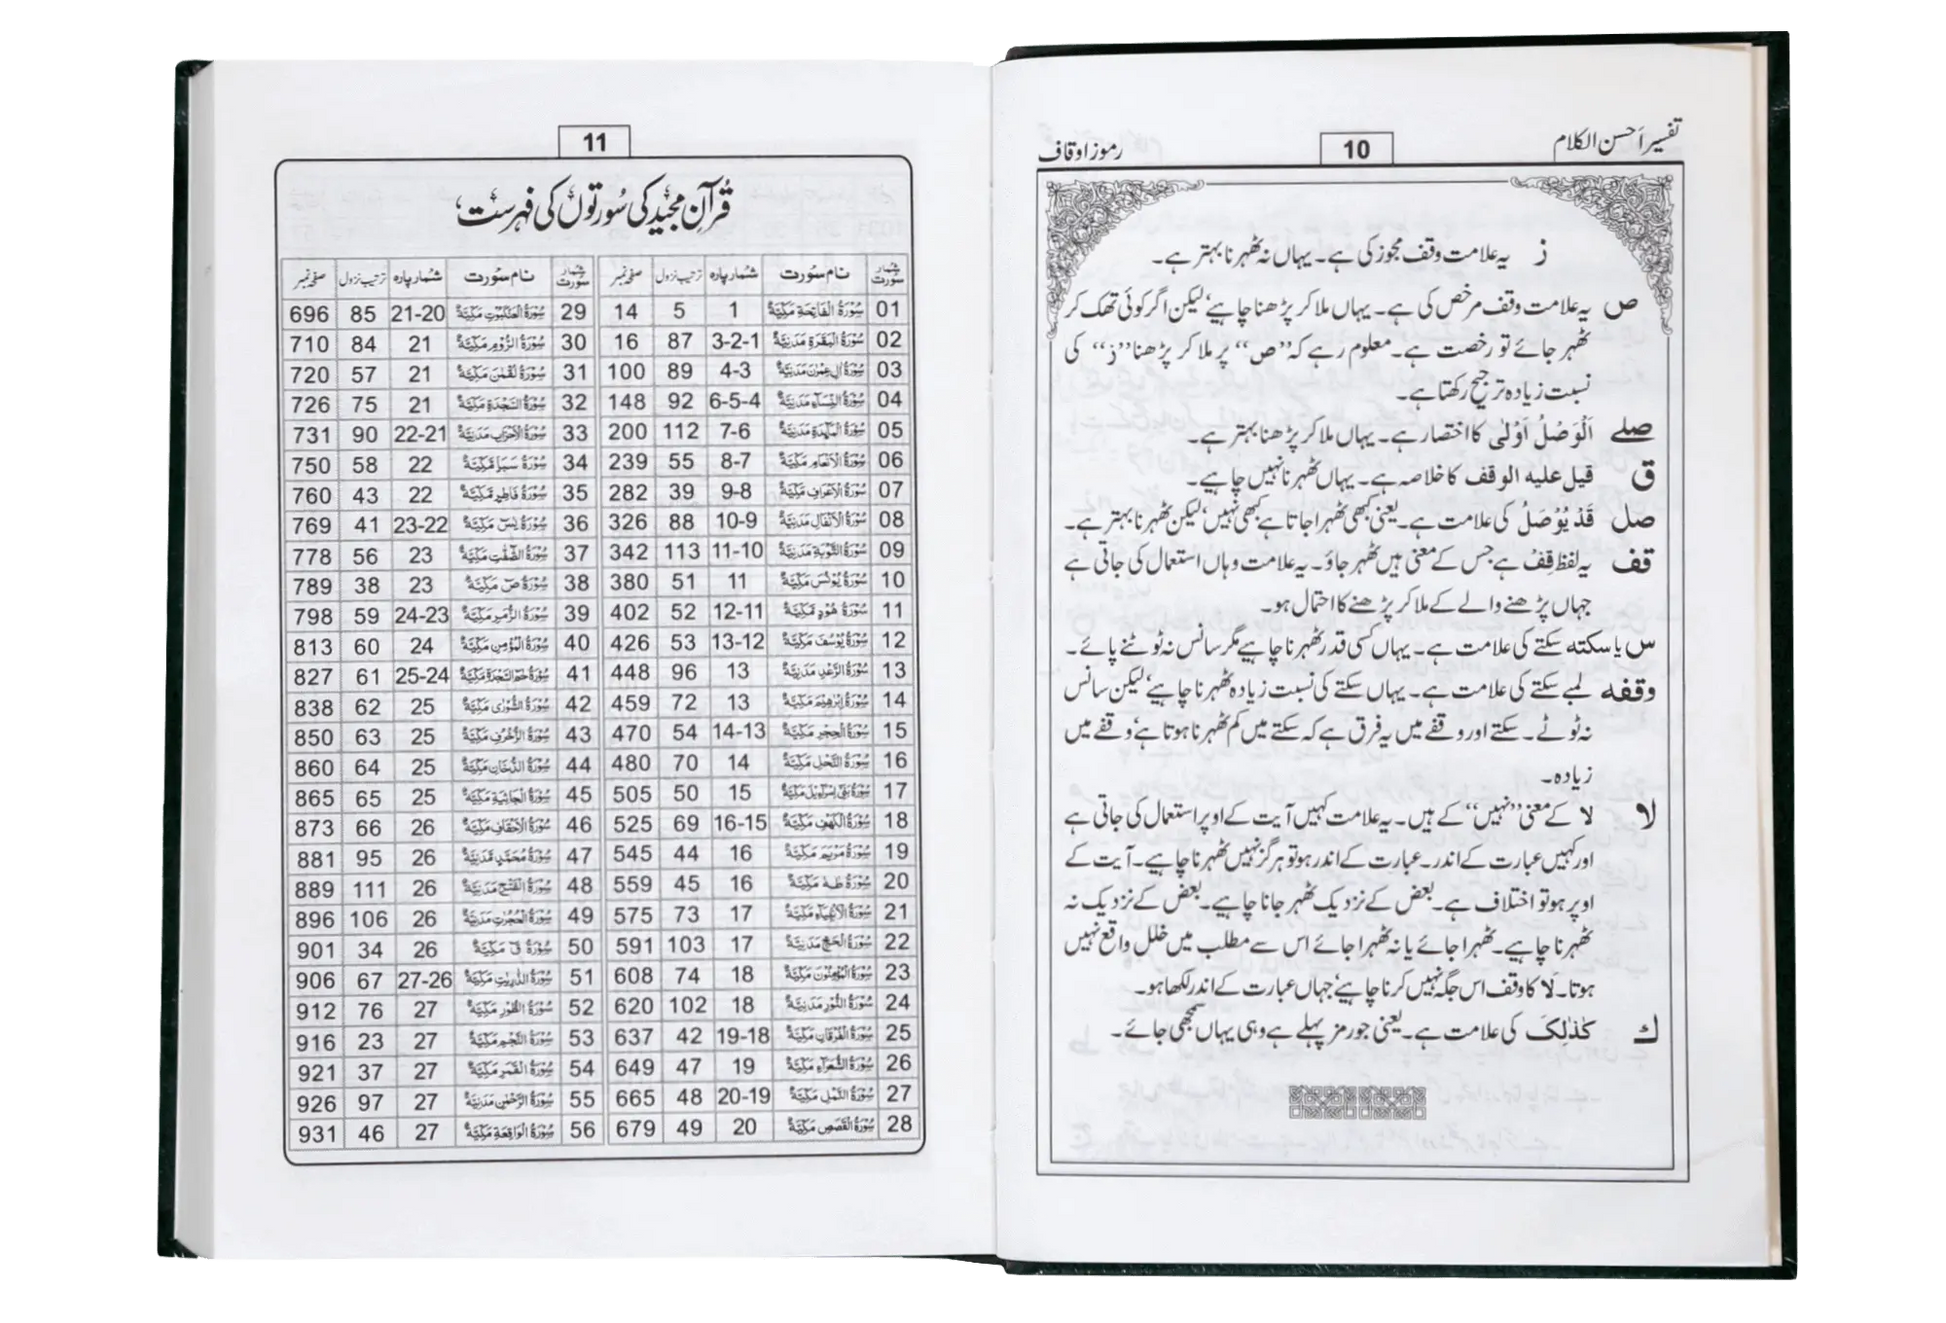 تفسیر اَحسن الکلام
10
رموز اوقاف
ز یہ علامت وقف مجوز کی ہے۔ یہاں نہ ٹھہرنا بہتر ہے۔
ص یہ علامت وقف مرخص کی ہے۔ یہاں ملا کر پڑھنا چاہیے‘ لیکن اگر کوئی تھک کر
ٹھہر جائے تو رخصت ہے۔ معلوم رہے کہ ”ص“ پر ملا کر پڑھنا ”ز“ کی
نسبت زیادہ ترجیح رکھتا ہے۔
صلے اَلْوَصْلُ اَوْلٰی کا اختصار ہے۔ یہاں ملا کر پڑھنا بہتر ہے۔
ق قیل علیہ الوقف کا خلاصہ ہے۔ یہاں ٹھہرنا نہیں چاہیے۔
صل قَدْ یُوْصَلُ کی علامت ہے۔ یعنی کبھی ٹھہرا جاتا ہے کبھی نہیں‘ لیکن ٹھہرنا بہتر ہے۔
قف یہ لفظ قِفْ ہے جس کے معنی ہیں ٹھہر جاؤ۔ یہ علامت وہاں استعمال کی جاتی ہے
جہاں پڑھنے والے کے ملا کر پڑھنے کا احتمال ہو۔
س یا سکته سکتے کی علامت ہے۔ یہاں کسی قدر ٹھہرنا چاہیے مگر سانس نہ ٹوٹنے پائے۔
وقفه لمبے سکتے کی علامت ہے۔ یہاں سکتے کی نسبت زیادہ ٹھہرنا چاہیے‘ لیکن سانس
نہ ٹوٹے۔ سکتے اور وقفے میں یہ فرق ہے کہ سکتے میں کم ٹھہرنا ہوتا ہے‘ وقفے میں
زیادہ۔
لا لا کے معنی ”نہیں“ کے ہیں۔ یہ علامت کہیں آیت کے اوپر استعمال کی جاتی ہے
اور کہیں عبارت کے اندر۔ عبارت کے اندر ہو تو ہرگز نہیں ٹھہرنا چاہیے۔ آیت کے
اوپر ہو تو اختلاف ہے۔ بعض کے نزدیک ٹھہر جانا چاہیے۔ بعض کے نزدیک نہ
ٹھہرنا چاہیے۔ ٹھہرا جائے یا نہ ٹھہرا جائے اس سے مطلب میں خلل واقع نہیں
ہوتا۔ لَا کا وقف اس جگہ نہیں کرنا چاہیے‘ جہاں عبارت کے اندر لکھا ہو۔
ك کَذٰلِکَ کی علامت ہے۔ یعنی جو رمز پہلے ہے وہی یہاں سمجھی جائے۔
11
قُرآنِ مجید کی سُورتوں کی فہرست
شمار سورت نام سُورت شمار پارہ ترتیب نزول صفحہ نمبر شمار سورت نام سُورت شمار پارہ ترتیب نزول صفحہ نمبر
01 سُوْرَةُ الْفَاتِحَةِ مَكِّيَّةٌ 1 5 14 29 سُوْرَةُ الْعَنْكَبُوْتِ مَكِّيَّةٌ 21-20 85 696
02 سُوْرَةُ الْبَقَرَةِ مَدَنِيَّةٌ 3-2-1 87 16 30 سُوْرَةُ الرُّوْمِ مَكِّيَّةٌ 21 84 710
03 سُوْرَةُ اٰلِ عِمْرٰنَ مَدَنِيَّةٌ 4-3 89 100 31 سُوْرَةُ لُقْمٰنَ مَكِّيَّةٌ 21 57 720
04 سُوْرَةُ النِّسَآءِ مَدَنِيَّةٌ 6-5-4 92 148 32 سُوْرَةُ السَّجْدَةِ مَكِّيَّةٌ 21 75 726
05 سُوْرَةُ الْمَآئِدَةِ مَدَنِيَّةٌ 7-6 112 200 33 سُوْرَةُ الْاَحْزَابِ مَدَنِيَّةٌ 22-21 90 731
06 سُوْرَةُ الْاَنْعَامِ مَكِّيَّةٌ 8-7 55 239 34 سُوْرَةُ سَبَاٍ مَكِّيَّةٌ 22 58 750
07 سُوْرَةُ الْاَعْرَافِ مَكِّيَّةٌ 9-8 39 282 35 سُوْرَةُ فَاطِرٍ مَكِّيَّةٌ 22 43 760
08 سُوْرَةُ الْاَنْفَالِ مَدَنِيَّةٌ 10-9 88 326 36 سُوْرَةُ يٰسٓ مَكِّيَّةٌ 23-22 41 769
09 سُوْرَةُ التَّوْبَةِ مَدَنِيَّةٌ 11-10 113 342 37 سُوْرَةُ الصّٰٓفّٰتِ مَكِّيَّةٌ 23 56 778
10 سُوْرَةُ يُوْنُسَ مَكِّيَّةٌ 11 51 380 38 سُوْرَةُ صٓ مَكِّيَّةٌ 23 38 789
11 سُوْرَةُ هُوْدٍ مَكِّيَّةٌ 12-11 52 402 39 سُوْرَةُ الزُّمَرِ مَكِّيَّةٌ 24-23 59 798
12 سُوْرَةُ يُوْسُفَ مَكِّيَّةٌ 13-12 53 426 40 سُوْرَةُ الْمُؤْمِنِ مَكِّيَّةٌ 24 60 813
13 سُوْرَةُ الرَّعْدِ مَدَنِيَّةٌ 13 96 448 41 سُوْرَةُ حٰمٓ السَّجْدَةِ مَكِّيَّةٌ 25-24 61 827
14 سُوْرَةُ اِبْرٰهِيْمَ مَكِّيَّةٌ 13 72 459 42 سُوْرَةُ الشُّوْرٰى مَكِّيَّةٌ 25 62 838
15 سُوْرَةُ الْحِجْرِ مَكِّيَّةٌ 14-13 54 470 43 سُوْرَةُ الزُّخْرُفِ مَكِّيَّةٌ 25 63 850
16 سُوْرَةُ النَّحْلِ مَكِّيَّةٌ 14 70 480 44 سُوْرَةُ الدُّخَانِ مَكِّيَّةٌ 25 64 860
17 سُوْرَةُ بَنِيْٓ اِسْرَآءِيْلَ مَكِّيَّةٌ 15 50 505 45 سُوْرَةُ الْجَاثِيَةِ مَكِّيَّةٌ 25 65 865
18 سُوْرَةُ الْكَهْفِ مَكِّيَّةٌ 16-15 69 525 46 سُوْرَةُ الْاَحْقَافِ مَكِّيَّةٌ 26 66 873
19 سُوْرَةُ مَرْيَمَ مَكِّيَّةٌ 16 44 545 47 سُوْرَةُ مُحَمَّدٍ مَدَنِيَّةٌ 26 95 881
20 سُوْرَةُ طٰهٰ مَكِّيَّةٌ 16 45 559 48 سُوْرَةُ الْفَتْحِ مَدَنِيَّةٌ 26 111 889
21 سُوْرَةُ الْاَنْبِيَآءِ مَكِّيَّةٌ 17 73 575 49 سُوْرَةُ الْحُجُرٰتِ مَدَنِيَّةٌ 26 106 896
22 سُوْرَةُ الْحَجِّ مَدَنِيَّةٌ 17 103 591 50 سُوْرَةُ قٓ مَكِّيَّةٌ 26 34 901
23 سُوْرَةُ الْمُؤْمِنُوْنَ مَكِّيَّةٌ 18 74 608 51 سُوْرَةُ الذّٰرِيٰتِ مَكِّيَّةٌ 27-26 67 906
24 سُوْرَةُ النُّوْرِ مَدَنِيَّةٌ 18 102 620 52 سُوْرَةُ الطُّوْرِ مَكِّيَّةٌ 27 76 912
25 سُوْرَةُ الْفُرْقَانِ مَكِّيَّةٌ 19-18 42 637 53 سُوْرَةُ النَّجْمِ مَكِّيَّةٌ 27 23 916
26 سُوْرَةُ الشُّعَرَآءِ مَكِّيَّةٌ 19 47 649 54 سُوْرَةُ الْقَمَرِ مَكِّيَّةٌ 27 37 921
27 سُوْرَةُ النَّمْلِ مَكِّيَّةٌ 20-19 48 665 55 سُوْرَةُ الرَّحْمٰنِ مَدَنِيَّةٌ 27 97 926
28 سُوْرَةُ الْقَصَصِ مَكِّيَّةٌ 20 49 679 56 سُوْرَةُ الْوَاقِعَةِ مَكِّيَّةٌ 27 46 931